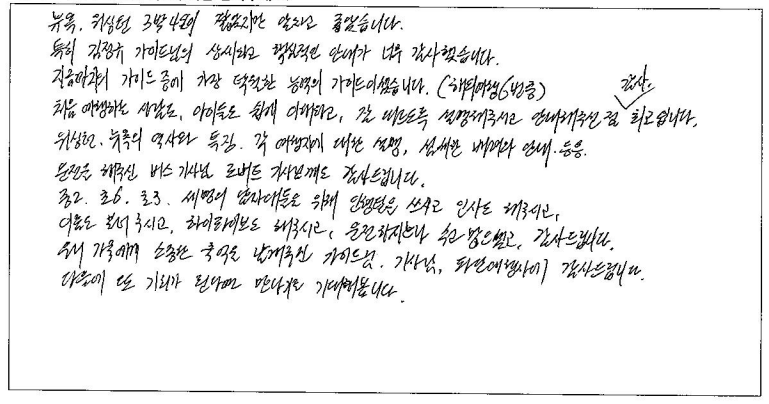 뉴욕, 워싱턴 3박4일이 짧았지만 알차고 좋았습니다.
특히 김정규 가이드님의 상세하고 핵심적인 안내가 너무 감사했습니다.
지금까지의 가이드 중에 가장 탁월한 능력의 가이드이셨습니다. (해외여행 6번중)
처음 여행하는 사람도, 아이들도 쉽게 이해하고, 잘 따르도록 설명해주시고 안내해주신 점 감사. 최고입니다.
워싱턴, 뉴욕의 역사와 특징, 각 여행지에 대한 설명, 섬세한 배려와 안내 등등.
운전을 해주신 버스기사님 로버트 기사님께도 감사드립니다.
중2, 초6, 초3, 세명의 남자애들을 위해 인사도 해주시고,
하이파이브도 해주시고, 운전하시느라 수고 많으셨고, 감사드립니다.
우리 가족에게 소중한 추억을 남겨주신 가이드님, 기사님, 감사드립니다.
다음에 또 기회가 된다면 만나기를 기대해봅니다.